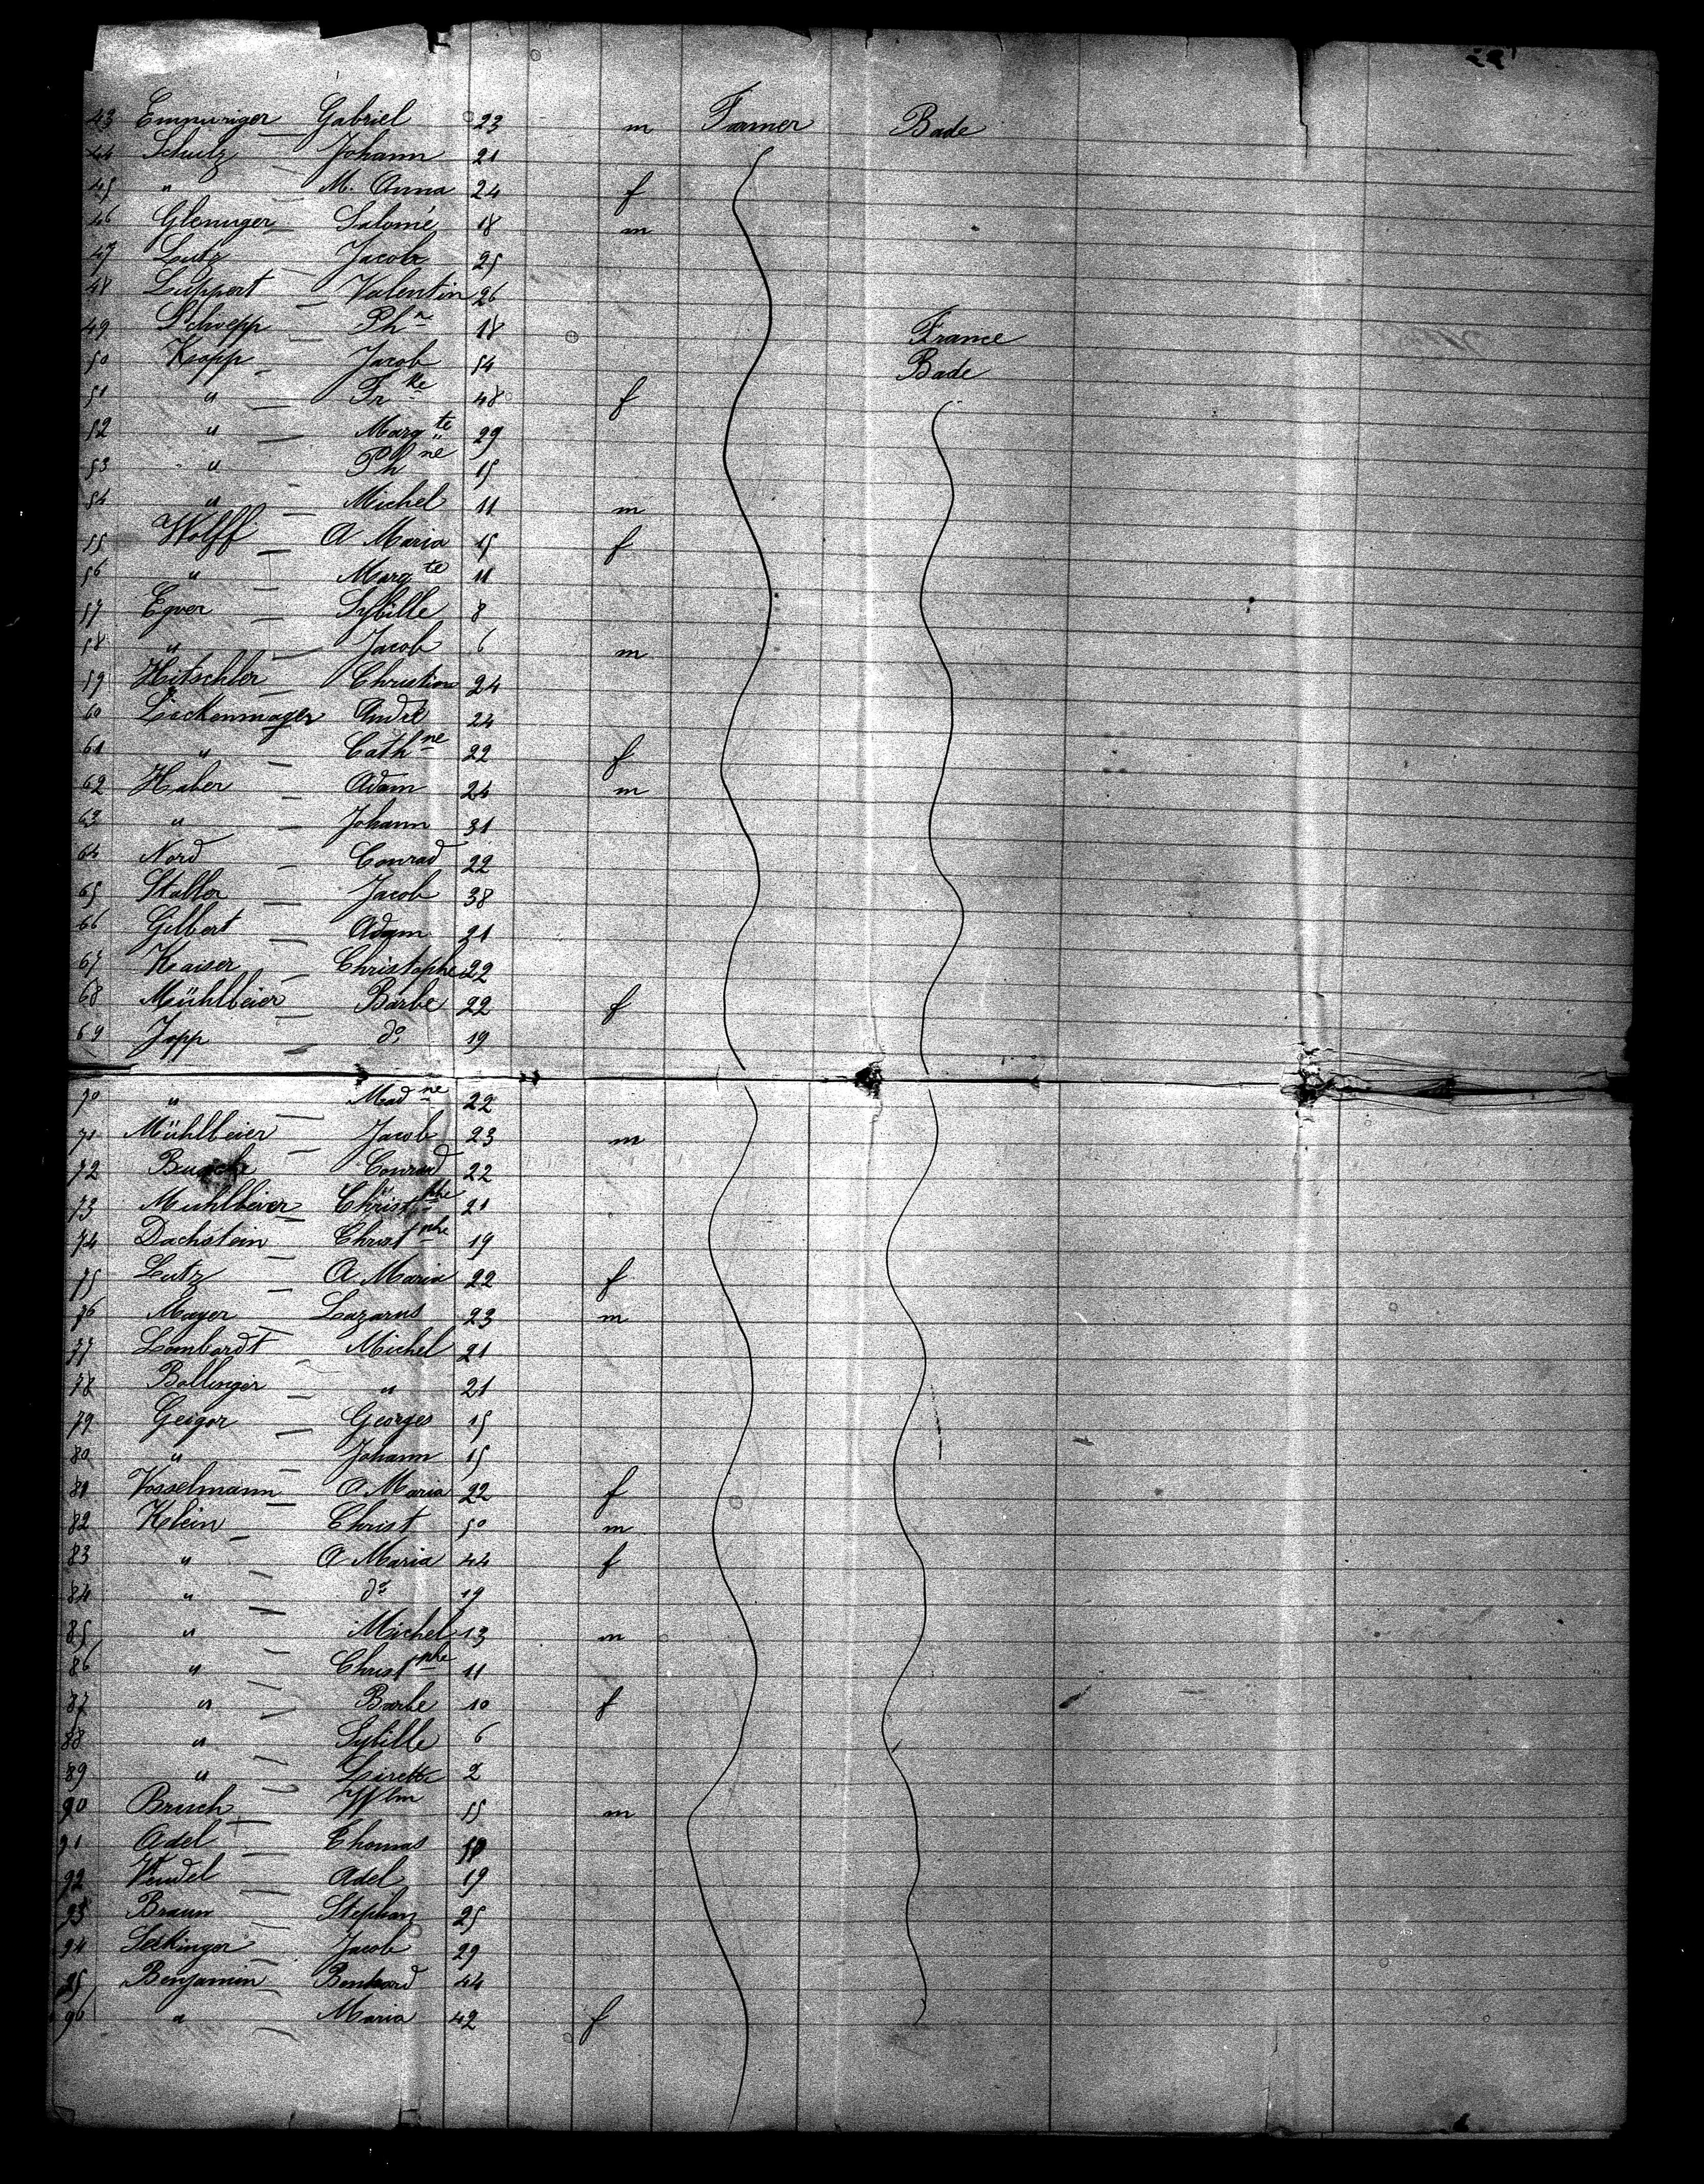 43 Emminger Gabriel 23 m Farmer Bade
44 Schulz Johann 21
45 " M. Anna 24 f
46 Glenniger Salomé 18 m
47 Lutz Jacob 25
48 Luppert Valentin 26
49 Schvepp Ph 18 France
50 Kopp Jacob 54 Bade
51 " Fr ke 48 f
52 " Marg te 29
53 " Ph ne 15
54 " Michel 11 m
55 Wolff A Maria 15 f
56 " Marg te 11
57 Egver Sybille 8
58 " Jacob 6 m
59 Hitschler Christian 24
60 Lickenmager André 24
61 " Cath ne 22 f
62 Haber Adam 24 m
63 " Johann 31
64 Nord Conrad 22
65 Staller Jacob 38
66 Gilbert Adam 21
67 Kaiser Christophe 22
68 Mühlbeier Barbe 22 f
69 Jopp do 19
70 " Mad ne 22
71 Mühlbeier Jacob 23 m
72 Conrad 22
73 Muhlbeier Christ phe 21
74 Dachstein Christ phe 19
75 Lutz A. Maria 22 f
76 Mayer Lazarus 23 m
77 Lombardt Michel 21
78 Bollinger " 21
79 Geiger Georges 15
80 " Johann 15
81 Vosselmann A Maria 22 f
82 Klein Christ 50 m
83 " A Maria 44 f
84 " do 19
85 " Michel 13 m
86 " Christ phe 11
87 " Barbe 10 f
88 " Sybille 6
89 " Lisette 2
90 Brisch Wlm 55 m
91 Adel Thomas
92 Wendel Adel 19
93 Braun Stephan 25
94 Seckinger Jacob 29
95 Benjamin Bernhard 44
96 " Maria 42 f